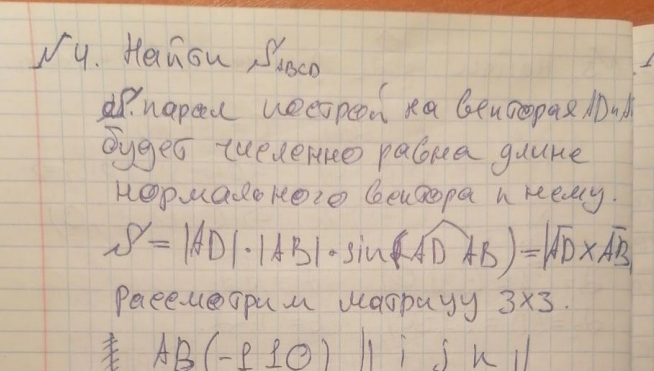 №4. Найти S ABCD
S. парал построй на векторах AD и A
будет численно равна длине
нормального вектора к нему.
S = |AD|·|AB|·sin(AD AB) = |AD×AB
Рассмотрим матрицу 3×3.
AB(-1 1 0) || i j k ||